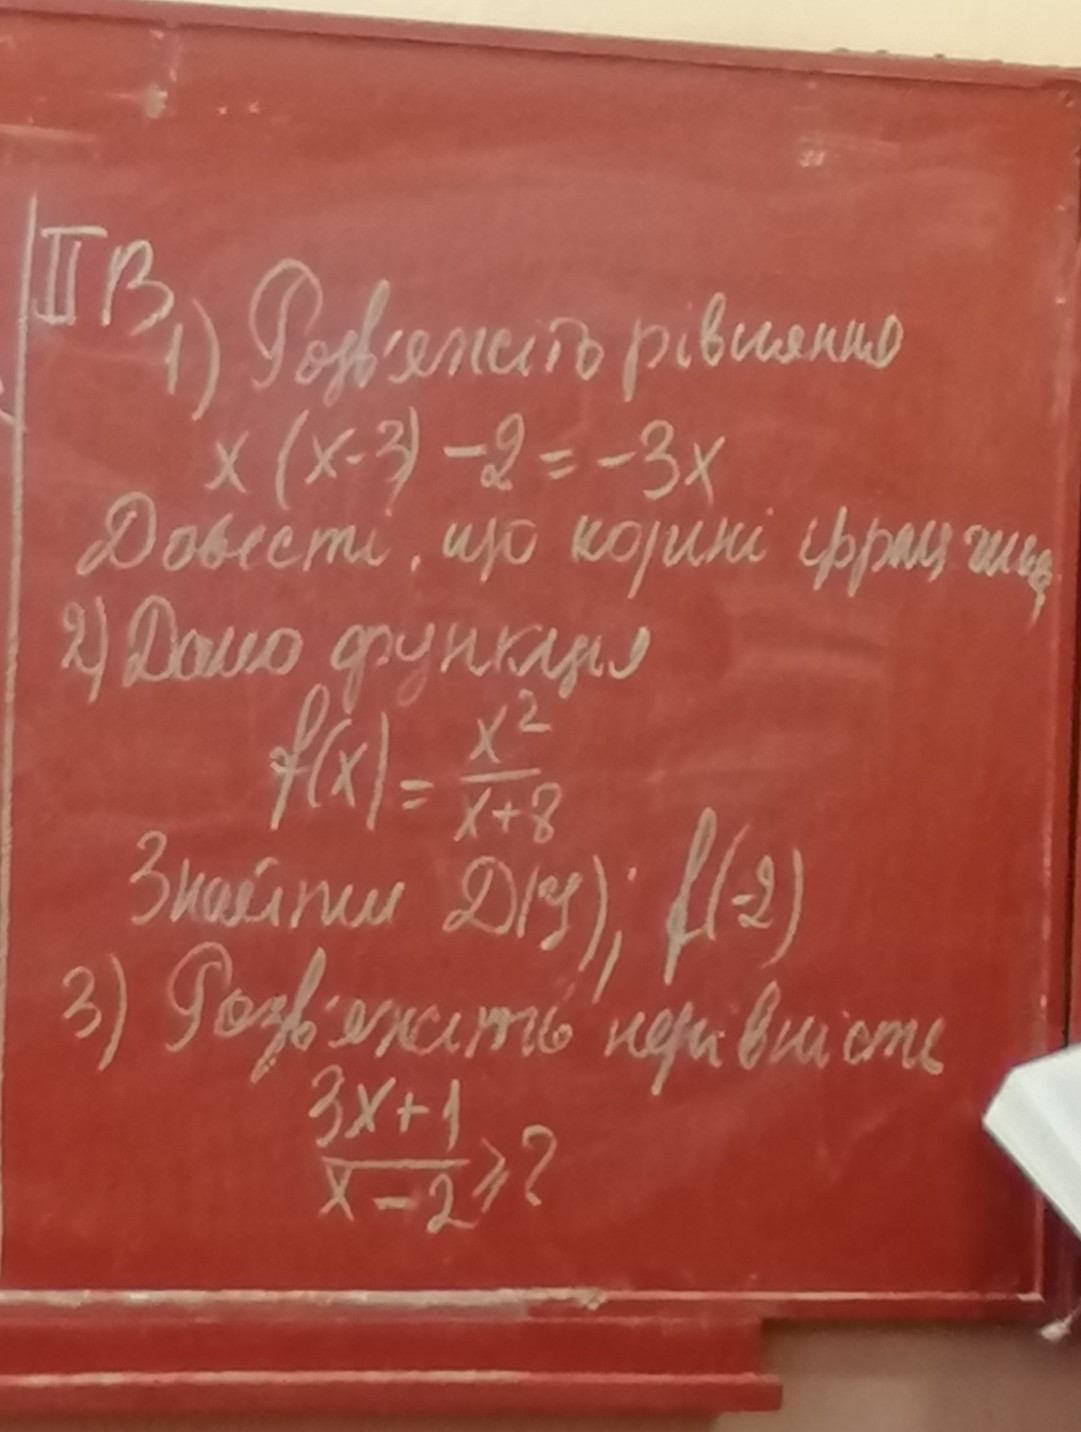 II В
1) Розв'яжіть рівняння
x(x-3)-2=-3x
Довести, що корині іррац
2) Дано функція
f(x) = x²/(x+8)
Знайти D(y); f(-2)
3) Розв'яжіть нерівність
3x+1
x-2 ⩾ ?